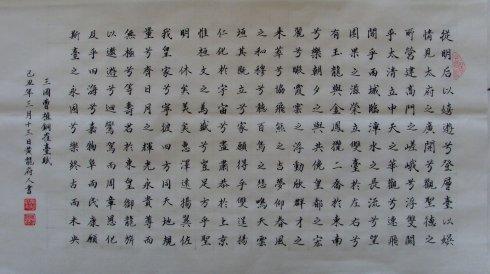 從明后以嬉遊兮登層臺以娛
情見太府之廣開兮觀聖德之
所營建高門之嵯峨兮浮雙闕
乎太清立中天之華觀兮連飛
閣乎西城臨漳水之長流兮望
園果之滋榮立雙臺於左右兮
有玉龍與金鳳攬二喬於東南
兮樂朝夕之與共俯皇都之宏
麗兮瞰雲霞之浮動欣群才之
來萃兮協飛熊之吉夢仰春風
之和穆兮聽百鳥之悲鳴天雲
垣其既立兮家願得乎雙逞揚
仁化於宇宙兮盡肅恭於上京
惟桓文之為盛兮豈足方乎聖
明 休矣美矣惠澤遠揚翼佐
我皇家兮寧彼四方同天地規
量兮齊日月之輝光永貴尊而
無極兮等壽君於東皇御龍旂
以遨遊兮迴鸞駕而周章恩化
及乎四海兮嘉物阜而民康願
斯臺之永固兮樂終古而未央
三國曹植銅雀臺賦
己丑年三月十三日黃龍府人書